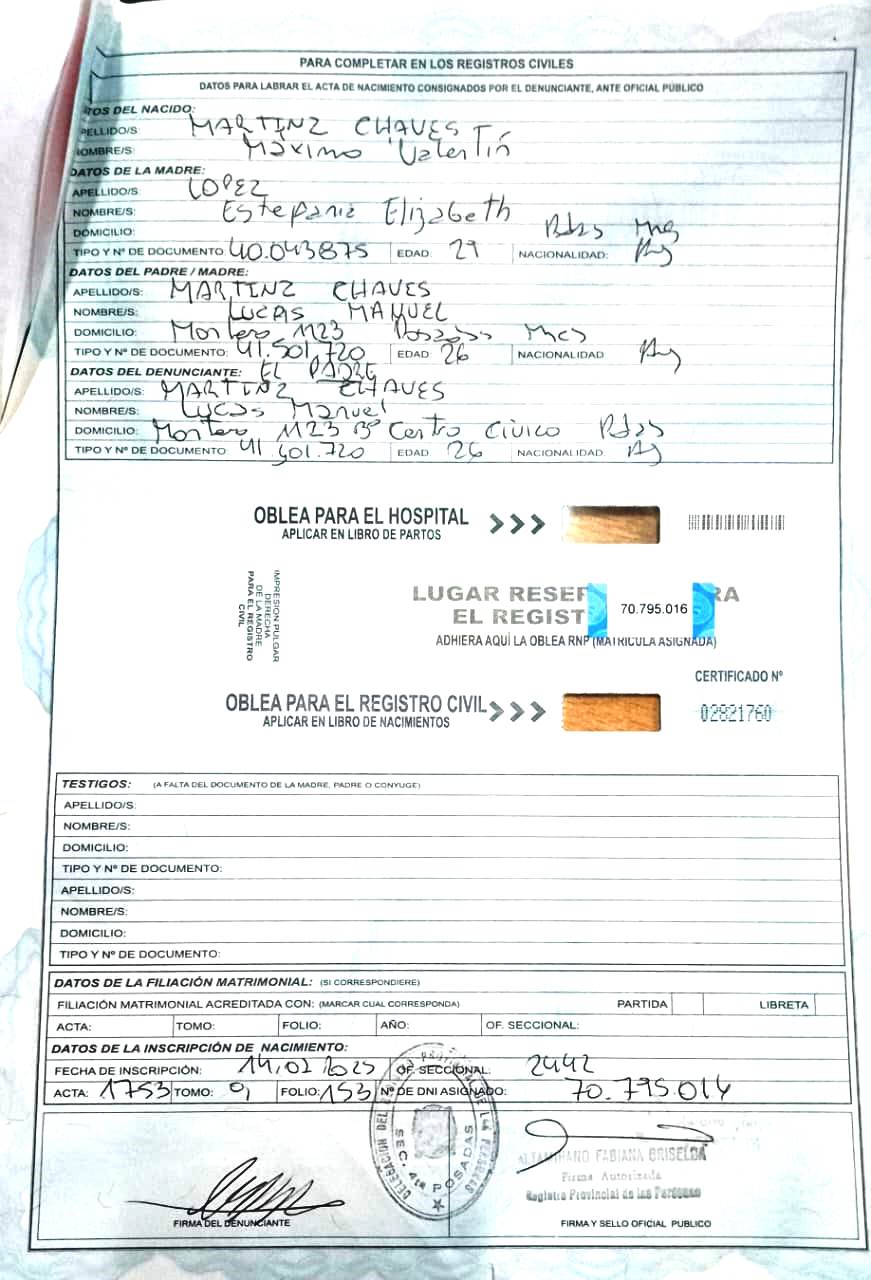 PARA COMPLETAR EN LOS REGISTROS CIVILES
DATOS PARA LABRAR EL ACTA DE NACIMIENTO CONSIGNADOS POR EL DENUNCIANTE, ANTE OFICIAL PÚBLICO
TOS DEL NACIDO:
PELLIDO/S MARTINZ CHAVES
OMBRE/S: Máximo Valentín
DATOS DE LA MADRE:
APELLIDO/S LOPEZ
NOMBRE/S: Estepania Elizabeth
DOMICILIO: Pdas Mnes
TIPO Y Nº DE DOCUMENTO: 40.043875 EDAD: 29 NACIONALIDAD: Arg
DATOS DEL PADRE / MADRE:
APELLIDO/S: MARTINZ CHAVES
NOMBRE/S: LUCAS MANUEL
DOMICILIO: Montero 1123 Posadas Mnes
TIPO Y Nº DE DOCUMENTO: 41.501.720 EDAD 26 NACIONALIDAD Arg
DATOS DEL DENUNCIANTE: EL PADRE
APELLIDO/S: MARTINZ CHAVES
NOMBRE/S: Lucas Manuel
DOMICILIO: Montero 1123 Bº Centro Cívico Pdas
TIPO Y Nº DE DOCUMENTO: 41.501.720 EDAD 26 NACIONALIDAD: Arg
OBLEA PARA EL HOSPITAL
APLICAR EN LIBRO DE PARTOS
IMPRESION PULGAR
DERECHA
DE LA MADRE
PARA EL REGISTRO
CIVIL
LUGAR RESER RA
EL REGIST
70.795.016
ADHIERA AQUÍ LA OBLEA RNP (MATRICULA ASIGNADA)
CERTIFICADO Nº
OBLEA PARA EL REGISTRO CIVIL
APLICAR EN LIBRO DE NACIMIENTOS
02821760
TESTIGOS: (A FALTA DEL DOCUMENTO DE LA MADRE, PADRE O CONYUGE)
APELLIDO/S:
NOMBRE/S:
DOMICILIO:
TIPO Y Nº DE DOCUMENTO:
APELLIDO/S:
NOMBRE/S:
DOMICILIO:
TIPO Y Nº DE DOCUMENTO:
DATOS DE LA FILIACIÓN MATRIMONIAL: (SI CORRESPONDIERE)
FILIACIÓN MATRIMONIAL ACREDITADA CON: (MARCAR CUAL CORRESPONDA) PARTIDA LIBRETA
ACTA: TOMO: FOLIO: AÑO: OF. SECCIONAL:
DATOS DE LA INSCRIPCIÓN DE NACIMIENTO:
FECHA DE INSCRIPCIÓN: 14.02.2025 OF. SECCIONAL: 2442
ACTA: 1753 TOMO: 9 FOLIO: 153 Nº DE DNI ASIGNADO: 70.795.016
SEC. 4ta POSADAS
ALTAMIRANO FABIANA GRISELDA
Firma Autorizada
Registro Provincial de las Personas
FIRMA DEL DENUNCIANTE
FIRMA Y SELLO OFICIAL PUBLICO